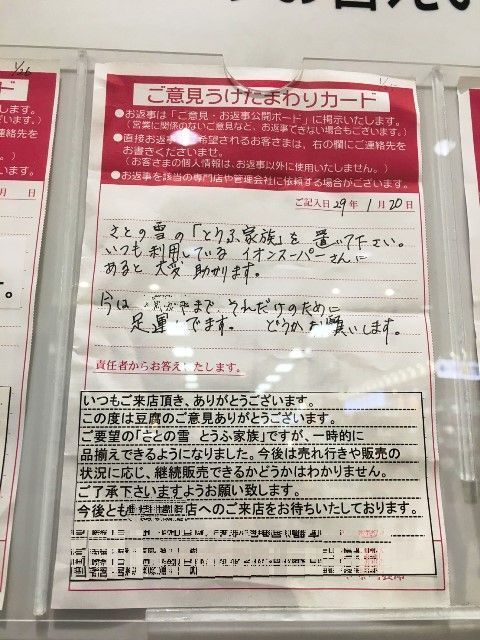 ご意見うけたまわりカード
●お返事は「ご意見・お返事公開ボード」に掲示いたします。
(営業に関係のないご意見など、お返事できない場合もございます。)
●直接お返事を希望されるお客さまは、右の欄にご連絡先を
お書きくださいませ。
(お客さまの個人情報は、お返事以外に使用いたしません。)
●お返事を該当の専門店や管理会社に依頼する場合がございます。
ご記入日29年1月20日
さとの雪の「とうふ家族」を置いて下さい。
いつも利用している イオンスーパーさんに
あると大変助かります。
今は まで それだけのために
足運んでます。 どうかお願いします。
責任者からお答えいたします。
いつもご来店頂き、ありがとうございます。
この度は豆腐のご意見ありがとうございます。
ご要望の「さとの雪 とうふ家族」ですが、一時的に
品揃えできるようになりました。今後は売れ行きや販売の
状況に応じ、継続販売できるかどうかはわかりません。
ご了承下さいますようお願い致します。
今後とも 店へのご来店をお待ちいたしております。